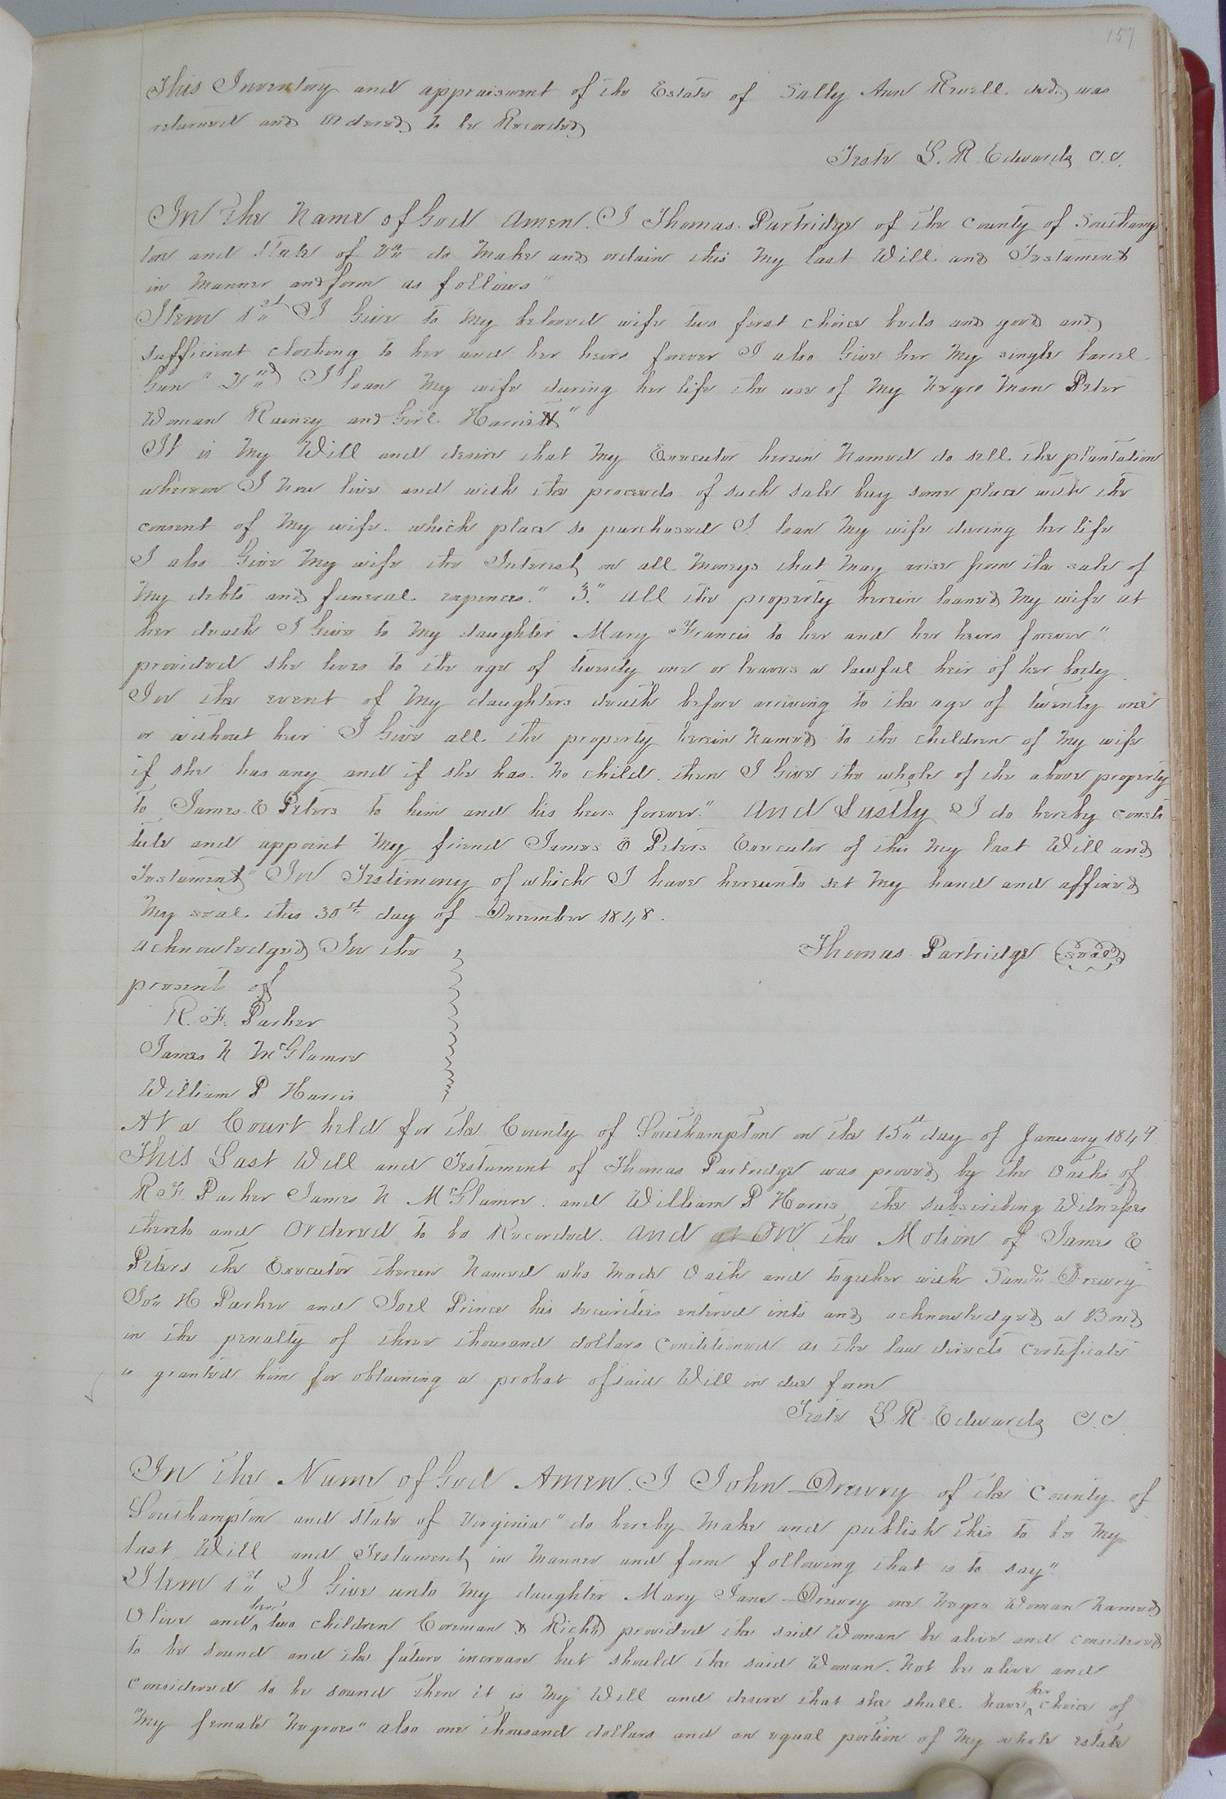 157
This Inventory and appraisment of the Estate of Sally Ann Revell decd, was
returned and Ordered to be Recorded
Teste L. R Edwards C.C.
In the Name of God Amen. I Thomas Partridge of the County of Southamp
ton and State of Va do Make and ordain this My last Will and Testament
in Manner and form as follows"
Item 1st I Give to My beloved wife two first choice beds and good and
sufficient clothing to her and her heirs forever I also Give her My single barrel
Gun" 2nd I loan My wife during her life the use of My Negro Man Peter
Woman Rainey and Girl Harriett"
It is My Will and desire that My Executor herein Named do sell the plantation
whereon I now live and with the proceeds of such sale buy some place with the
consent of My wife which place so purchased I loan My wife during her life
I also Give My wife the Interest on all Moneys that May arise from the sale of
My debts and funeral expences." 3." All the property herein loaned My wife at
her death I Give to My daughter Mary Francis to her and her heirs forever"
provided she lives to the age of twenty one or leaves a lawful heir of her body
In the event of My daughters death before arriving to the age of twenty one
or without heir I Give all the property herein Named to the children of My wife
if she has any and if she has No child then I Give the whole of the above property
to James E Peters to him and his heirs forever." And Lastly I do hereby consti
tute and appoint My friend James E Peters Executor of this My last Will and
Testament" In Testimony of which I have hereunto set My hand and affixed
My seal this 30th day of December 1848.
acknowledged In the
Thomas Partridge seal
present of
R. F. Parker
James N McGlamre
William P Harris
At a Court held for the County of Southampton on the 15th day of January 1849
This Last Will and Testament of Thomas Partridge was proved by the Oaths of
R F. Parker James N McGlamre and William P Harris the subscribing Witnesses
thereto and Ordered to be Recorded. And On the Motion of James E
Peters the Executor therein Named who Made Oath and together with Saml Drewry
Jos H Parker and Joel Prince his securities entered into and acknowledged a Bond
in the penalty of three thousand dollars conditioned as the law directs certificate
is granted him for obtaining a probat of said Will in due form
Teste L R Edwards C.C.
In the Name of God Amen. I John Drewry of the County of
Southampton and State of Virginia" do hereby Make and publish this to be My
last Will and Testament in Manner and form following that is to say"
Item 1st I Give unto My daughter Mary Jane Drewry one Negro Woman Named
Olive and her two children Coreman & Richd provided the said Woman be alive and considered
to be sound and the future increase but should the said Woman Not be alive and
considered to be sound then it is My Will and desire that she shall have the choice of
My female Negroes" also one thousand dollars and an equal portion of My whole estate